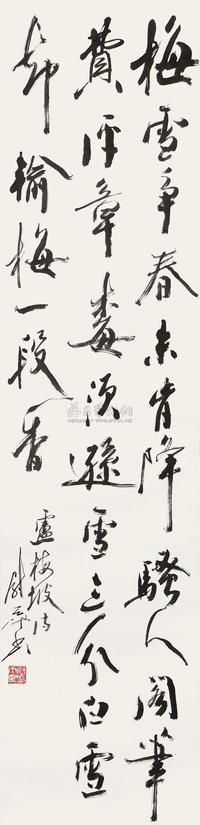 梅雪争春未肯降骚人阁笔
费评章梅须逊雪三分白雪
却输梅一段香
卢梅坡诗